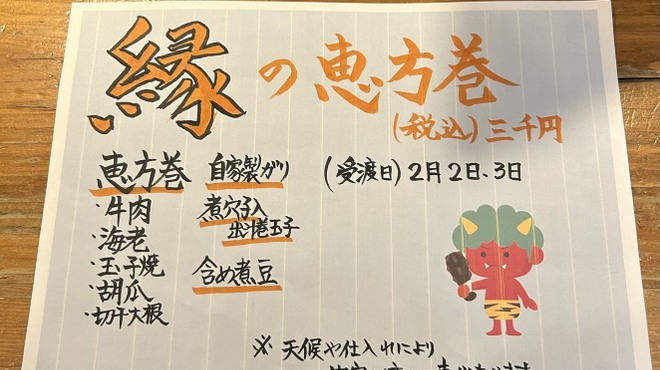 縁の恵方巻
(税込)三千円
恵方巻
・牛肉
・海老
・玉子焼
・胡瓜
・切干大根
自家製ガリ
煮穴子入
出汁巻玉子
含め煮豆
(受渡日)2月2日、3日
※天候や仕入れにより